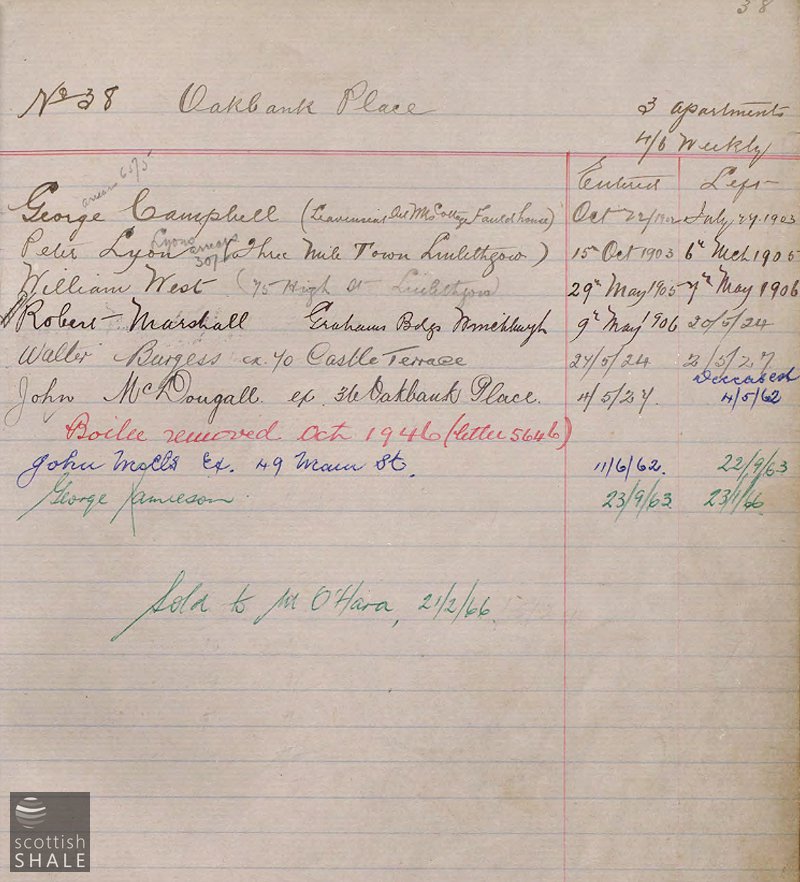 38
No 38 Oakbank Place
3 apartments
4/6 Weekly
Entered Left
arrears 65/5
George Campbell ( Cottage Fauldhouse) Oct 22/1902 July 27. 1903
Lyons arrears 30/1
Peter Lyon (Three Mile Town Linlithgow) 15th Oct 1903 6th Mch 1905
William West (75 High St Linlithgow) 29th May 1905 7th May 1906
Robert Marshall Grahams Bdgs Winchburgh 9th May 1906 20/5/24
Walter Burgess ex. 70 Castle Terrace 27/5/24 2/5/27
Deceased
John McDougall. ex. 36 Oakbank Place. 4/5/27. 4/5/62
Boiler removed Oct 1946 (letter 5646)
John Ex. 49 Main St. 11/6/62. 22/9/63
George Jamieson 23/9/63 23/1/66
Sold to M O'Hara, 21/2/66.
scottish
SHALE